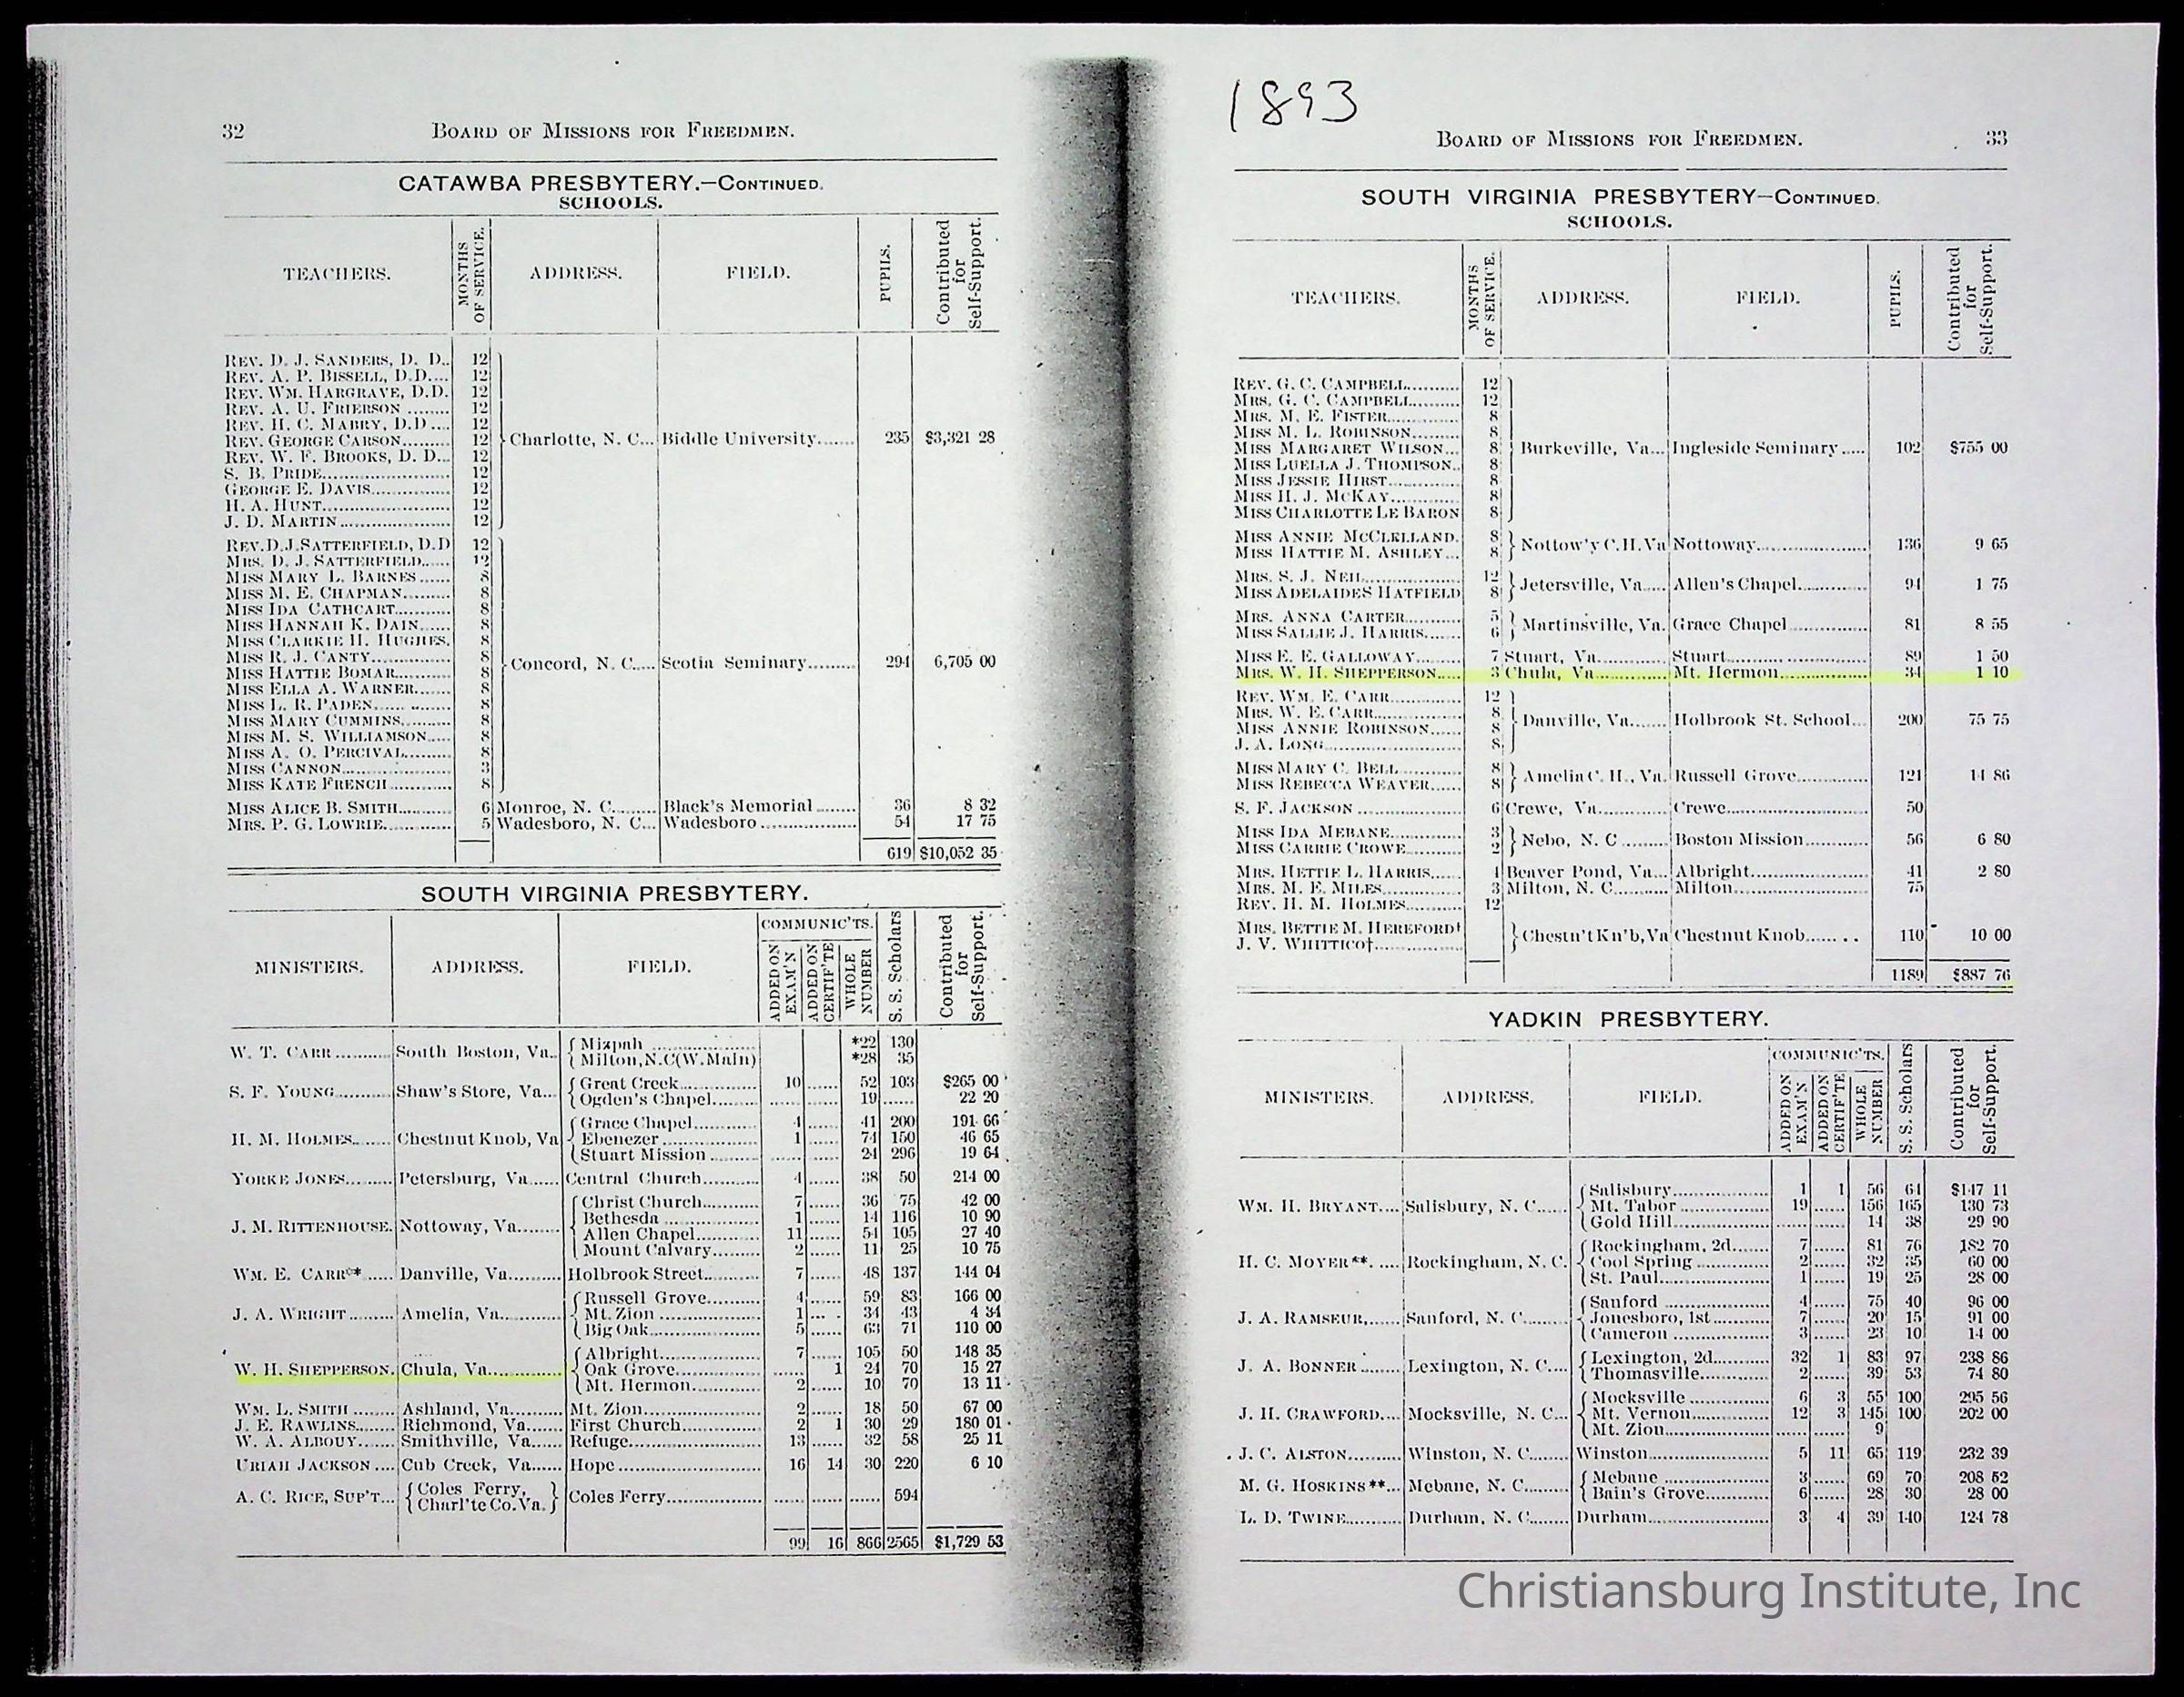 32 BOARD OF MISSIONS FOR FREEDMEN.
CATAWBA PRESBYTERY.—CONTINUED.
SCHOOLS.
TEACHERS. MONTHS OF SERVICE. ADDRESS. FIELD. PUPILS. Contributed for Self-Support.
REV. D. J. SANDERS, D. D.. 12
REV. A. P. BISSELL, D.D.... 12
REV. WM. HARGRAVE, D.D. 12
REV. A. U. FRIERSON ........ 12
REV. H. C. MABRY, D.D .... 12
REV. GEORGE CARSON......... 12 Charlotte, N. C... Biddle University....... 235 $3,321 28
REV. W. F. BROOKS, D. D... 12
S. B. PRIDE........................ 12
GEORGE E. DAVIS............... 12
H. A. HUNT........................ 12
J. D. MARTIN ..................... 12
REV.D.J.SATTERFIELD, D.D 12
MRS. D. J. SATTERFIELD...... 12
MISS MARY L. BARNES ...... 8
MISS M. E. CHAPMAN......... 8
MISS IDA CATHCART........... 8
MISS HANNAH K. DAIN...... 8
MISS CLARKIE H. HUGHES. 8
MISS R. J. CANTY............... 8
MISS HATTIE BOMAR........... 8 Concord, N. C..... Scotia Seminary......... 294 6,705 00
MISS ELLA A. WARNER....... 8
MISS L. R. PADEN...... ....... 8
MISS MARY CUMMINS.......... 8
MISS M. S. WILLIAMSON..... 8
MISS A. O. PERCIVAL......... 8
MISS CANNON..................... 3
MISS KATE FRENCH ............ 8
MISS ALICE B. SMITH.......... 6 Monroe, N. C........ Black's Memorial ........ 36 8 32
MRS. P. G. LOWRIE............. 5 Wadesboro, N. C... Wadesboro .................. 54 17 75
619 $10,052 35
SOUTH VIRGINIA PRESBYTERY.
MINISTERS. ADDRESS. FIELD. COMMUNIC'TS. ADDED ON EXAM'N ADDED ON CERTIF'TE WHOLE NUMBER S. S. Scholars Contributed for Self-Support.
W. T. CARR........... South Boston, Va.. Mizpah .................. *22 130
Milton,N.C(W.Main) *28 35
S. F. YOUNG........... Shaw's Store, Va... Great Creek.............. 10 ...... 52 103 $265 00
Ogden's Chapel......... ...... ...... 19 ...... 22 20
H. M. HOLMES........ Chestnut Knob, Va Grace Chapel............ 4 ...... 41 200 191 66
Ebenezer ................. 1 ...... 74 150 46 65
Stuart Mission .......... ...... ...... 24 296 19 64
YORKE JONES......... Petersburg, Va...... Central Church........... 4 ...... 38 50 214 00
J. M. RITTENHOUSE. Nottoway, Va........ Christ Church........... 7 ...... 36 75 42 00
Bethesda ................. 1 ...... 14 116 10 90
Allen Chapel............. 11 ...... 54 105 27 40
Mount Calvary.......... 2 ...... 11 25 10 75
WM. E. CARR** ...... Danville, Va.......... Holbrook Street........... 7 ...... 48 137 144 04
J. A. WRIGHT ......... Amelia, Va............ Russell Grove........... 4 ...... 59 83 166 00
Mt. Zion .................. 1 ... . 34 43 4 34
Big Oak.................... 5 ...... 63 71 110 00
W. H. SHEPPERSON. Chula, Va.............. Albright.................. 7 ...... 105 50 148 35
Oak Grove................ ...... 1 24 70 15 27
Mt. Hermon.............. 2 ...... 10 70 13 11
WM. L. SMITH ........ Ashland, Va.......... Mt. Zion..................... 2 ...... 18 50 67 00
J. E. RAWLINS........ Richmond, Va....... First Church............... 2 1 30 29 180 01
W. A. ALBOUY....... Smithville, Va....... Refuge....................... 13 ...... 32 58 25 11
URIAH JACKSON .... Cub Creek, Va...... Hope ........................ 16 14 30 220 6 10
A. C. RICE, SUP'T... Coles Ferry, Charl'te Co.Va. Coles Ferry................ ...... ...... ...... 594
99 16 866 2565 $1,729 53
1893
BOARD OF MISSIONS FOR FREEDMEN. 33
SOUTH VIRGINIA PRESBYTERY—CONTINUED.
SCHOOLS.
TEACHERS. MONTHS OF SERVICE. ADDRESS. FIELD. PUPILS. Contributed for Self-Support.
REV. G. C. CAMPBELL........... 12
MRS. G. C. CAMPBELL.......... 12
MRS. M. E. FISTER.............. 8
MISS M. L. ROBINSON.......... 8
MISS MARGARET WILSON... 8 Burkeville, Va... Ingleside Seminary ..... 102 $755 00
MISS LUELLA J. THOMPSON.. 8
MISS JESSIE HIRST.............. 8
MISS H. J. MCKAY.............. 8
MISS CHARLOTTE LE BARON 8
MISS ANNIE MCCLELLAND. 8 Nottow'y C.H. Va Nottoway..................... 136 9 65
MISS HATTIE M. ASHLEY... 8
MRS. S. J. NEIL................... 12 Jetersville, Va..... Allen's Chapel............. 94 1 75
MISS ADELAIDES HATFIELD 8
MRS. ANNA CARTER............ 5 Martinsville, Va. Grace Chapel ............... 81 8 55
MISS SALLIE J. HARRIS....... 6
MISS E. E. GALLOWAY......... 7 Stuart, Va............. Stuart........................ 89 1 50
MRS. W. H. SHEPPERSON..... 3 Chula, Va.............. Mt. Hermon................. 34 1 10
REV. WM. E. CARR.............. 12
MRS. W. E. CARR................. 8 Danville, Va....... Holbrook St. School... 200 75 75
MISS ANNIE ROBINSON...... 8
J. A. LONG......................... 8
MISS MARY C. BELL............ 8 Amelia C. H., Va. Russell Grove.............. 121 14 86
MISS REBECCA WEAVER...... 8
S. F. JACKSON .................... 6 Crewe, Va............. Crewe........................ 50
MISS IDA MEBANE............... 3 Nebo, N. C ......... Boston Mission............ 56 6 80
MISS CARRIE CROWE........... 2
MRS. HETTIE L. HARRIS...... 4 Beaver Pond, Va... Albright...................... 41 2 80
MRS. M. E. MILES............... 3 Milton, N. C.......... Milton........................ 75
REV. H. M. HOLMES............ 12
MRS. BETTIE M. HEREFORD† Chestn't Kn'b, Va Chestnut Knob...... . . 110 10 00
J. V. WHITTICO†.................
1189 $887 76
YADKIN PRESBYTERY.
MINISTERS. ADDRESS. FIELD. COMMUNIC'TS. ADDED ON EXAM'N ADDED ON CERTIF'TE WHOLE NUMBER S. S. Scholars Contributed for Self-Support.
WM. H. BRYANT.... Salisbury, N. C...... Salisbury................... 1 1 56 64 $147 11
Mt. Tabor ................ 19 ...... 156 165 130 73
Gold Hill.................. ...... ...... 14 38 29 90
H. C. MOYER**. .... Rockingham, N. C. Rockingham, 2d....... 7 ...... 81 76 182 70
Cool Spring .............. 2 ...... 32 35 60 00
St. Paul.................... 1 ...... 19 25 28 00
J. A. RAMSEUR....... Sanford, N. C......... Sanford ................... 4 ...... 75 40 96 00
Jonesboro, 1st........... 7 ...... 20 15 91 00
Cameron ................. 3 ...... 23 10 14 00
J. A. BONNER ........ Lexington, N. C.... Lexington, 2d........... 32 1 83 97 238 86
Thomasville.............. 2 ...... 39 53 74 80
J. H. CRAWFORD.... Mocksville, N. C... Mocksville ............... 6 3 55 100 295 56
Mt. Vernon............... 12 3 145 100 202 00
Mt. Zion................... ...... ...... 9
J. C. ALSTON.......... Winston, N. C........ Winston..................... 5 11 65 119 232 39
M. G. HOSKINS **... Mebane, N. C......... Mebane .................... 3 ...... 69 70 208 52
Bain's Grove............. 6 ...... 28 30 28 00
L. D. TWINE........... Durham, N. C........ Durham...................... 3 4 39 140 124 78
Christiansburg Institute, Inc